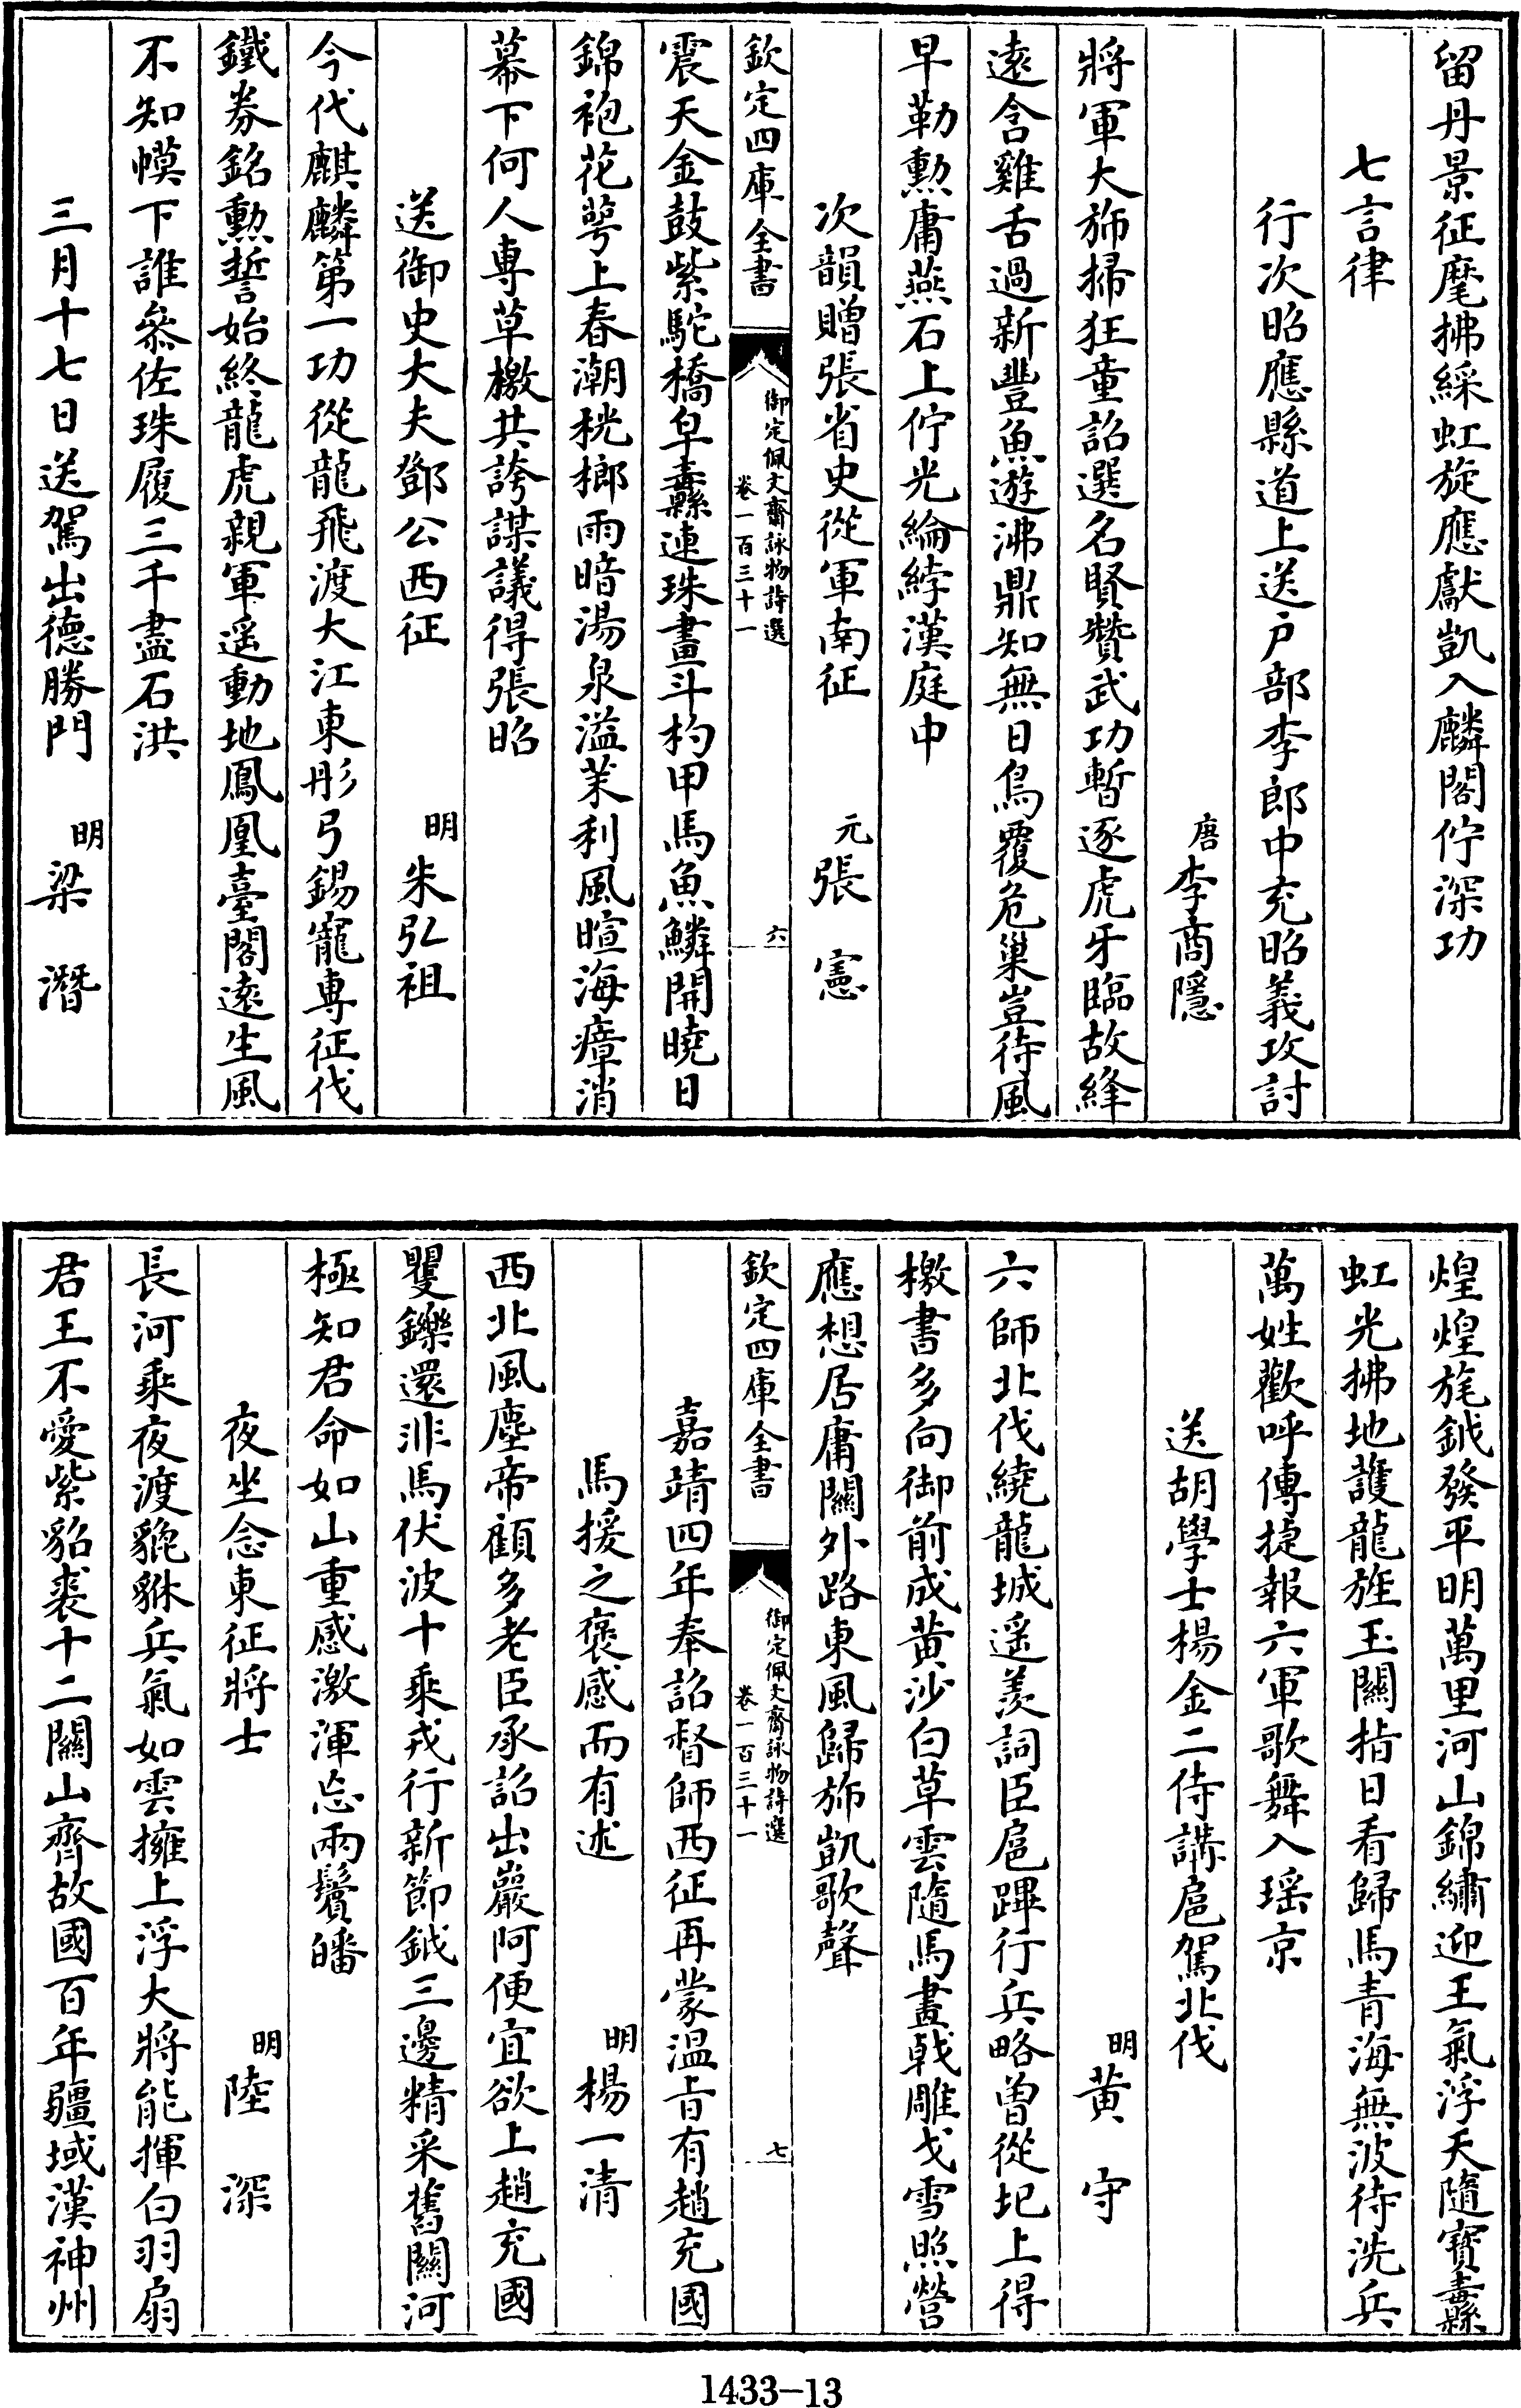 留丹景征麾拂綵虹旋應獻凱入麟閣佇深功
七言律
行次昭應縣道上送户部李郎中充昭義攻討
唐李商隱
將軍大斾掃狂童詔選名賢贊武功暫逐虎牙臨故絳
遠含雞舌過新豐魚遊沸鼎知無日鳥覆危巢豈待風
早勒勲庸燕石上佇光綸綍漢庭中
次韻贈張省史從軍南征　元張憲
欽定四庫全書
御定佩文齋詠物詩選
卷一百三十一
六
震天金鼓紫駝橋皁纛連珠畫斗杓甲馬魚鱗開曉日
錦袍花萼上春潮桄榔雨暗湯泉溢茉利風暄海瘴消
幕下何人專草檄共誇謀議得張昭
送御史大夫鄧公西征　明朱弘祖
今代麒麟第一功從龍飛渡大江東彤弓錫寵專征伐
鐵券銘勲誓始終龍虎親軍遥動地鳳凰臺閣遠生風
不知幙下誰叅佐珠履三千盡石洪
三月十七日送駕出德勝門　明梁潛
煌煌旄鉞發平明萬里河山錦繡迎王氣浮天隨寳纛
虹光拂地護龍旌玉關指日看歸馬青海無波待洗兵
萬姓歡呼傳捷報六軍歌舞入瑶京
送胡學士楊金二侍講扈駕北伐
明黄守
六師北伐繞龍城遥羨詞臣扈蹕行兵略曾從圯上得
檄書多向御前成黄沙白草雲隨馬畫戟雕戈雪照營
應想居庸關外路東風歸斾凱歌聲
欽定四庫全書
御定佩文齋詠物詩選
卷一百三十一
七
嘉靖四年奉詔督師西征再蒙温旨有趙充國
馬援之褒感而有述　明楊一清
西北風塵帝顧多老臣承詔出巖阿便宜欲上趙充國
矍鑠還非馬伏波十乘戎行新節鉞三邊精采舊關河
極知君命如山重感激渾忘兩鬢皤
夜坐念東征將士　明陸深
長河乘夜渡貔貅兵氣如雲擁上浮大將能揮白羽扇
君王不愛紫貂裘十二關山齊故國百年疆域漢神州
1433-13